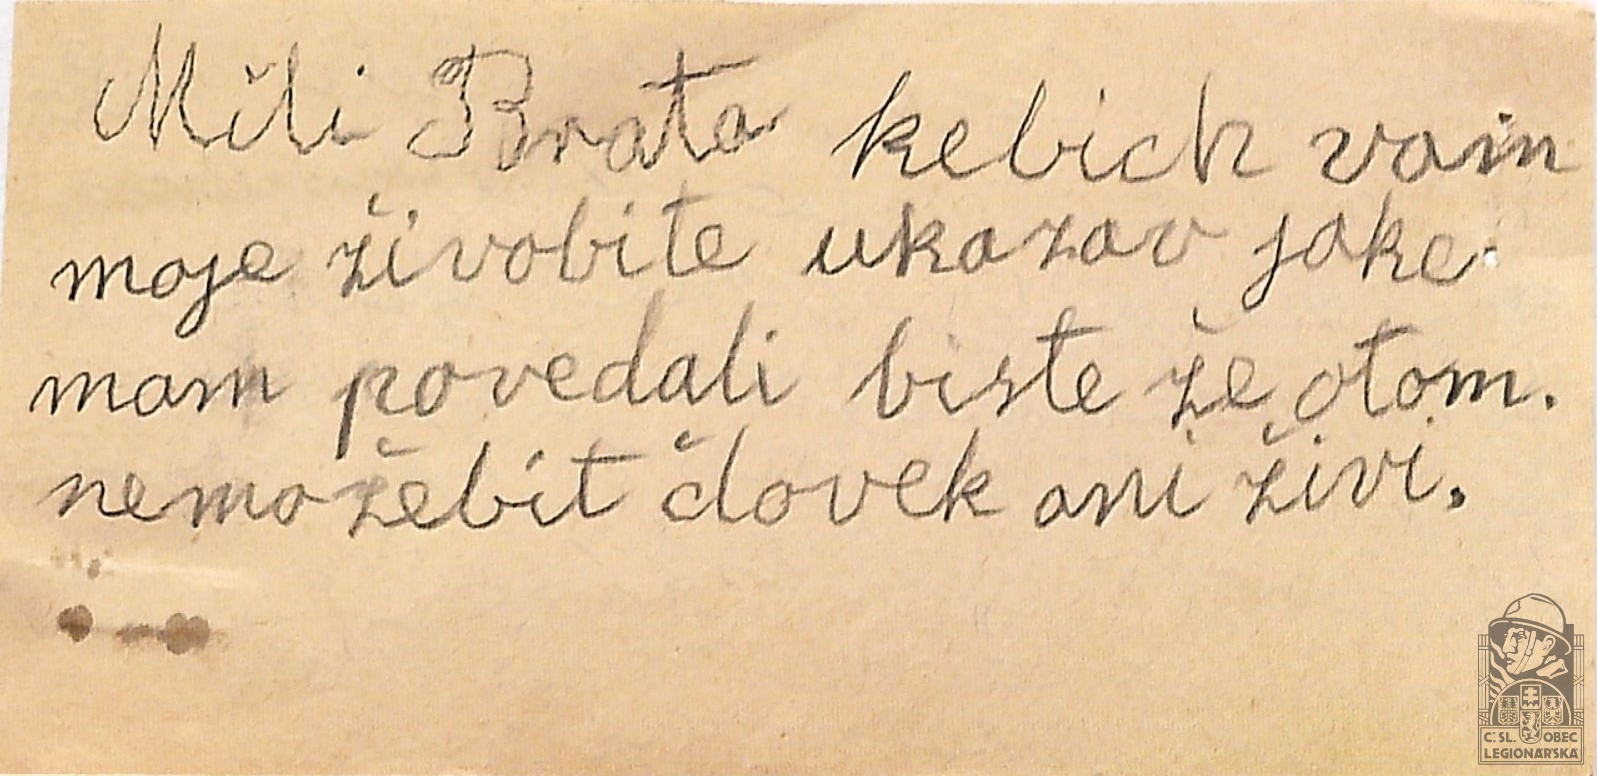 Mili Brata kebich vam
moje živobite ukazav jake
mam povedali biste že otom.
nemožebit človek ani živi.
Č. SL. OBEC
LEGIONÁŘSKÁ